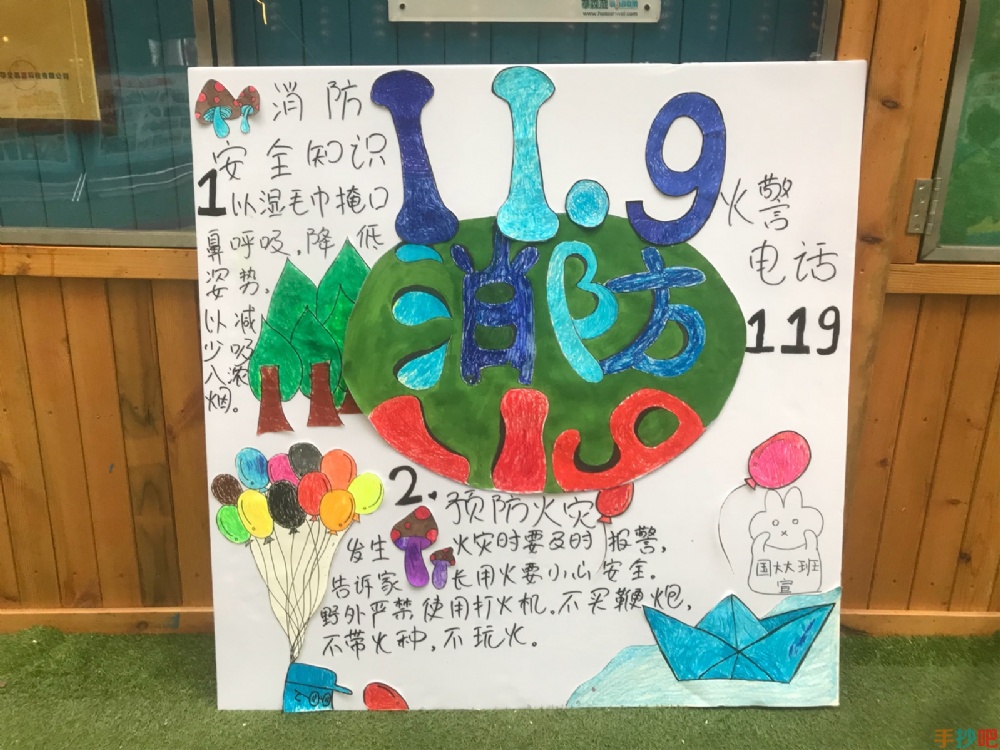 消防
安全知识
1以湿毛巾掩口
鼻呼吸,降低
姿势,
以减
少吸
入浓
烟。
11.9
消防
119
火警
电话
119
2.
预防火灾
发生火灾时要及时报警,
告诉家长用火要小心安全.
野外严禁使用打火机.不买鞭炮,
不带火种,不玩火。
国大大班
宣
手抄吧